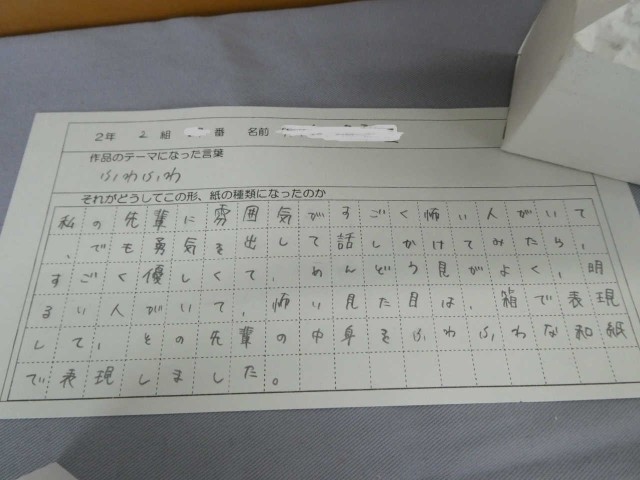 2年 2 組 番 名前
作品のテーマになった言葉
ふわふわ
それがどうしてこの形、紙の種類になったのか
私の先輩に雰囲気がすごく怖い人がいて
、でも勇気を出して話しかけてみたら、
すごく優しくて、めんどう見がよく、明
るい人がいて、怖い見た目は、箱で表現
して、その先輩の中身をふわふわな和紙
で表現しました。